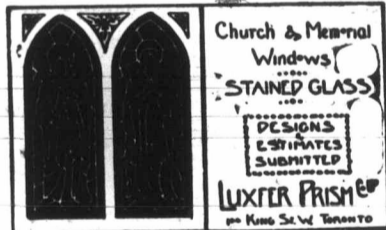 Church & Memorial
Windows
STAINED GLASS
DESIGNS
&
ESTIMATES
SUBMITTED
LUXFER PRISM Co
KING ST. W. TORONTO